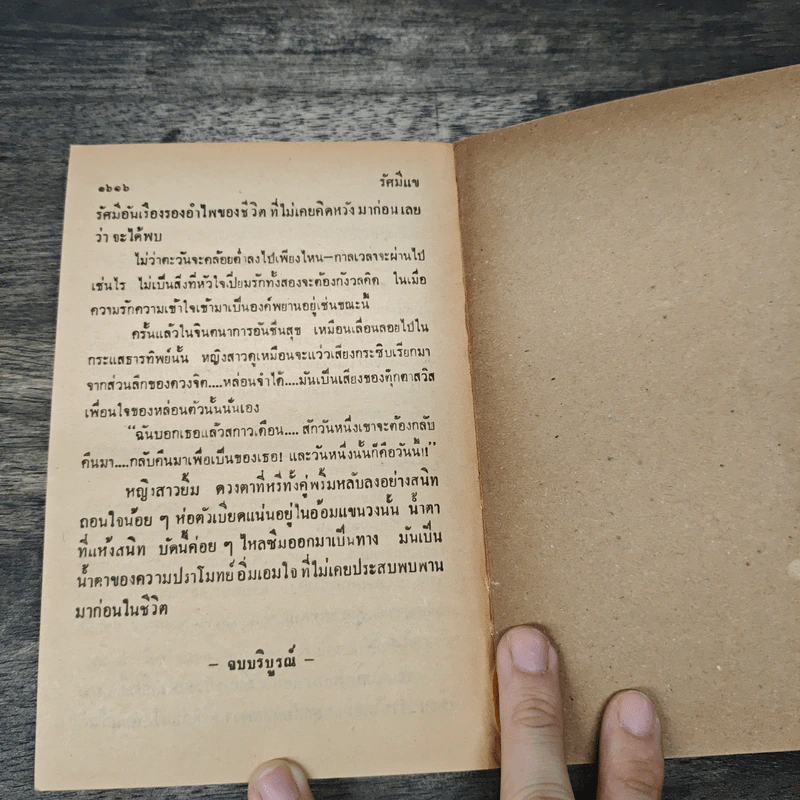 ๑๖๑๖ รัศมีแข
รัศมีอันเรืองรองอำไพของชีวิต ที่ไม่เคยคิดหวัง มาก่อน เลย
ว่า จะได้พบ
ไม่ว่าตะวันจะคล้อยต่ำลงไปเพียงไหน–กาลเวลาจะผ่านไป
เช่นไร ไม่เป็นสิ่งที่หัวใจเปี่ยมรักทั้งสองจะต้องกังวลคิด ในเมื่อ
ความรักความเข้าใจเข้ามาเป็นองค์พยานอยู่เช่นขณะนี้
ครั้นแล้วในจินตนาการอันชื่นสุข เหมือนเลื่อนลอยไปใน
กระแสธารทิพย์นั้น หญิงสาวดูเหมือนจะแว่วเสียงกระซิบเรียกมา
จากส่วนลึกของดวงจิต....หล่อนจำได้....มันเป็นเสียงของตุ๊กตาสวิส
เพื่อนใจของหล่อนตัวนั้นนั่นเอง
“ฉันบอกเธอแล้วสกาวเดือน.... สักวันหนึ่งเขาจะต้องกลับ
คืนมา....กลับคืนมาเพื่อเป็นของเธอ! และวันหนึ่งนั้นก็คือวันนี้!”
หญิงสาวยิ้ม ดวงตาที่หรี่ทั้งคู่พริ้มหลับลงอย่างสนิท
ถอนใจน้อย ๆ ห่อตัวเบียดแน่นอยู่ในอ้อมแขนวงนั้น น้ำตา
ที่แห้งสนิท บัดนี้ค่อย ๆ ไหลซึมออกมาเป็นทาง มันเป็น
น้ำตาของความปราโมทย์ อิ่มเอมใจ ที่ไม่เคยประสบพบพาน
มาก่อนในชีวิต
– จบบริบูรณ์ –